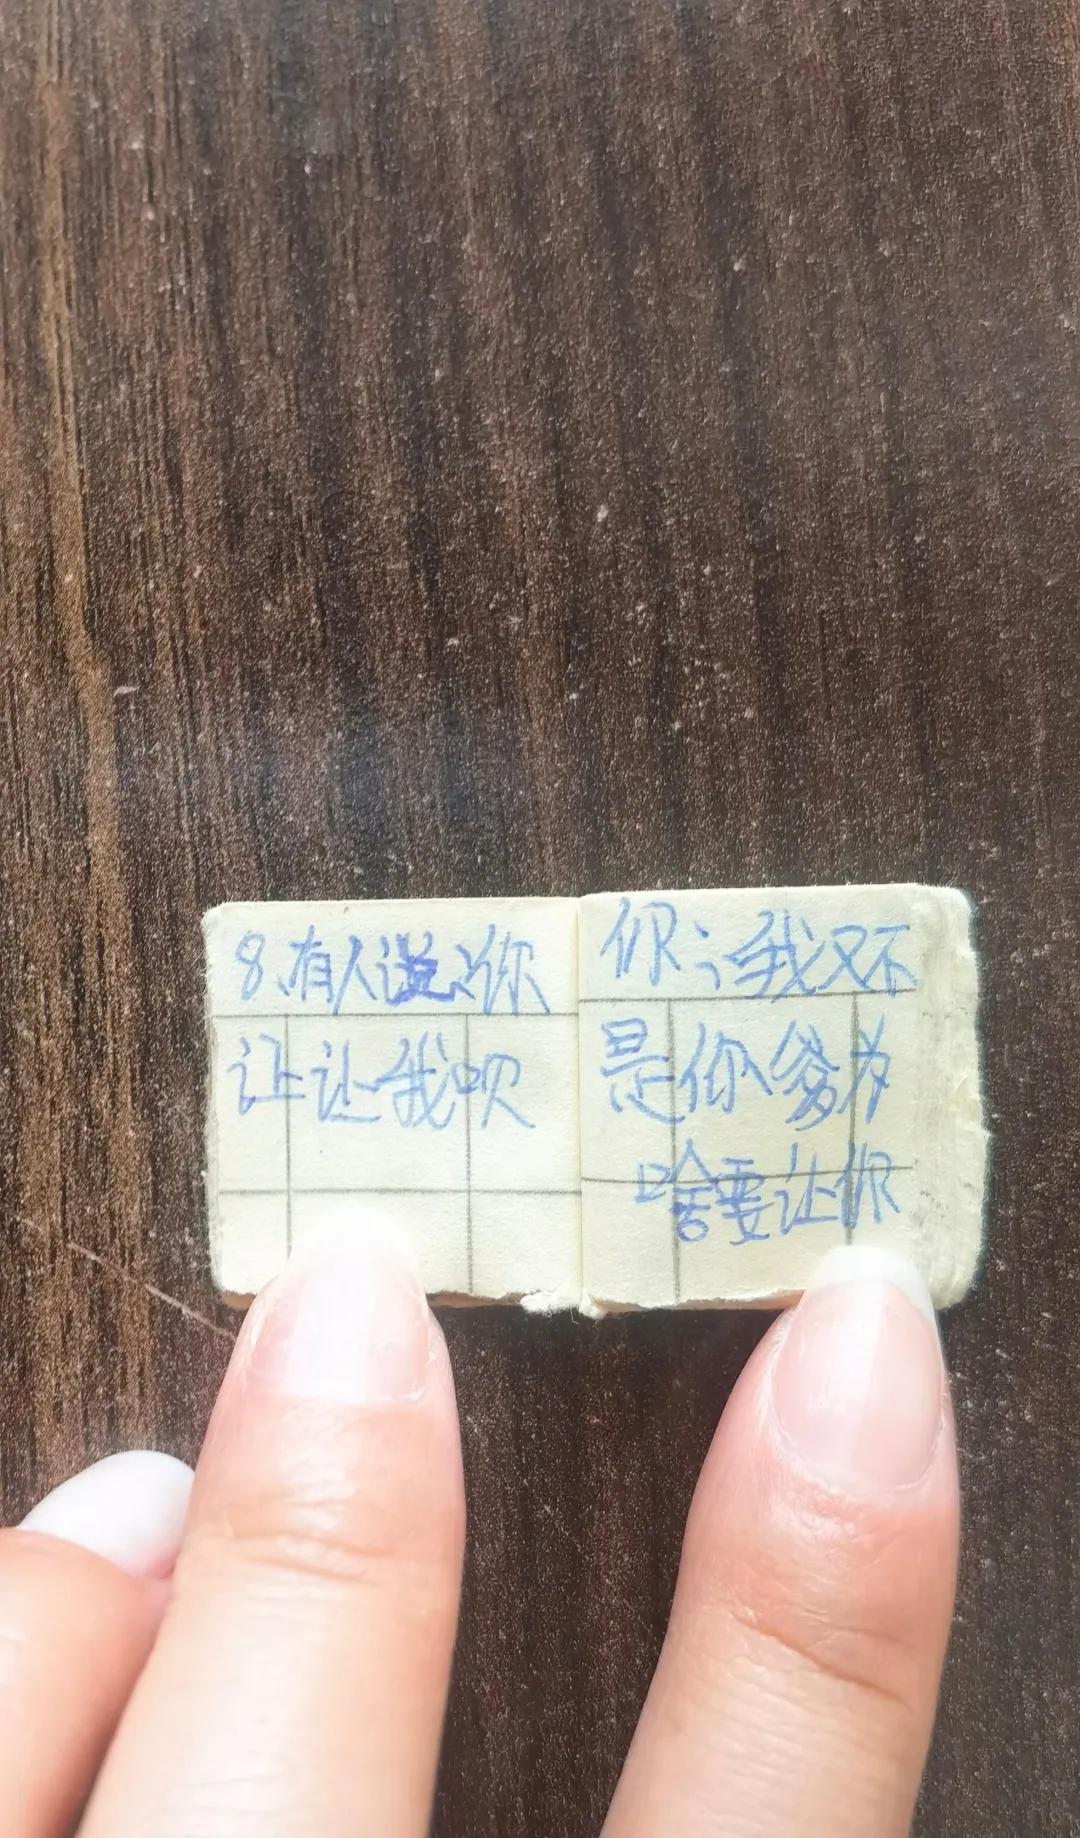 8、有人说：你
让让我呗
你：我又不
是你爹为
啥要让你